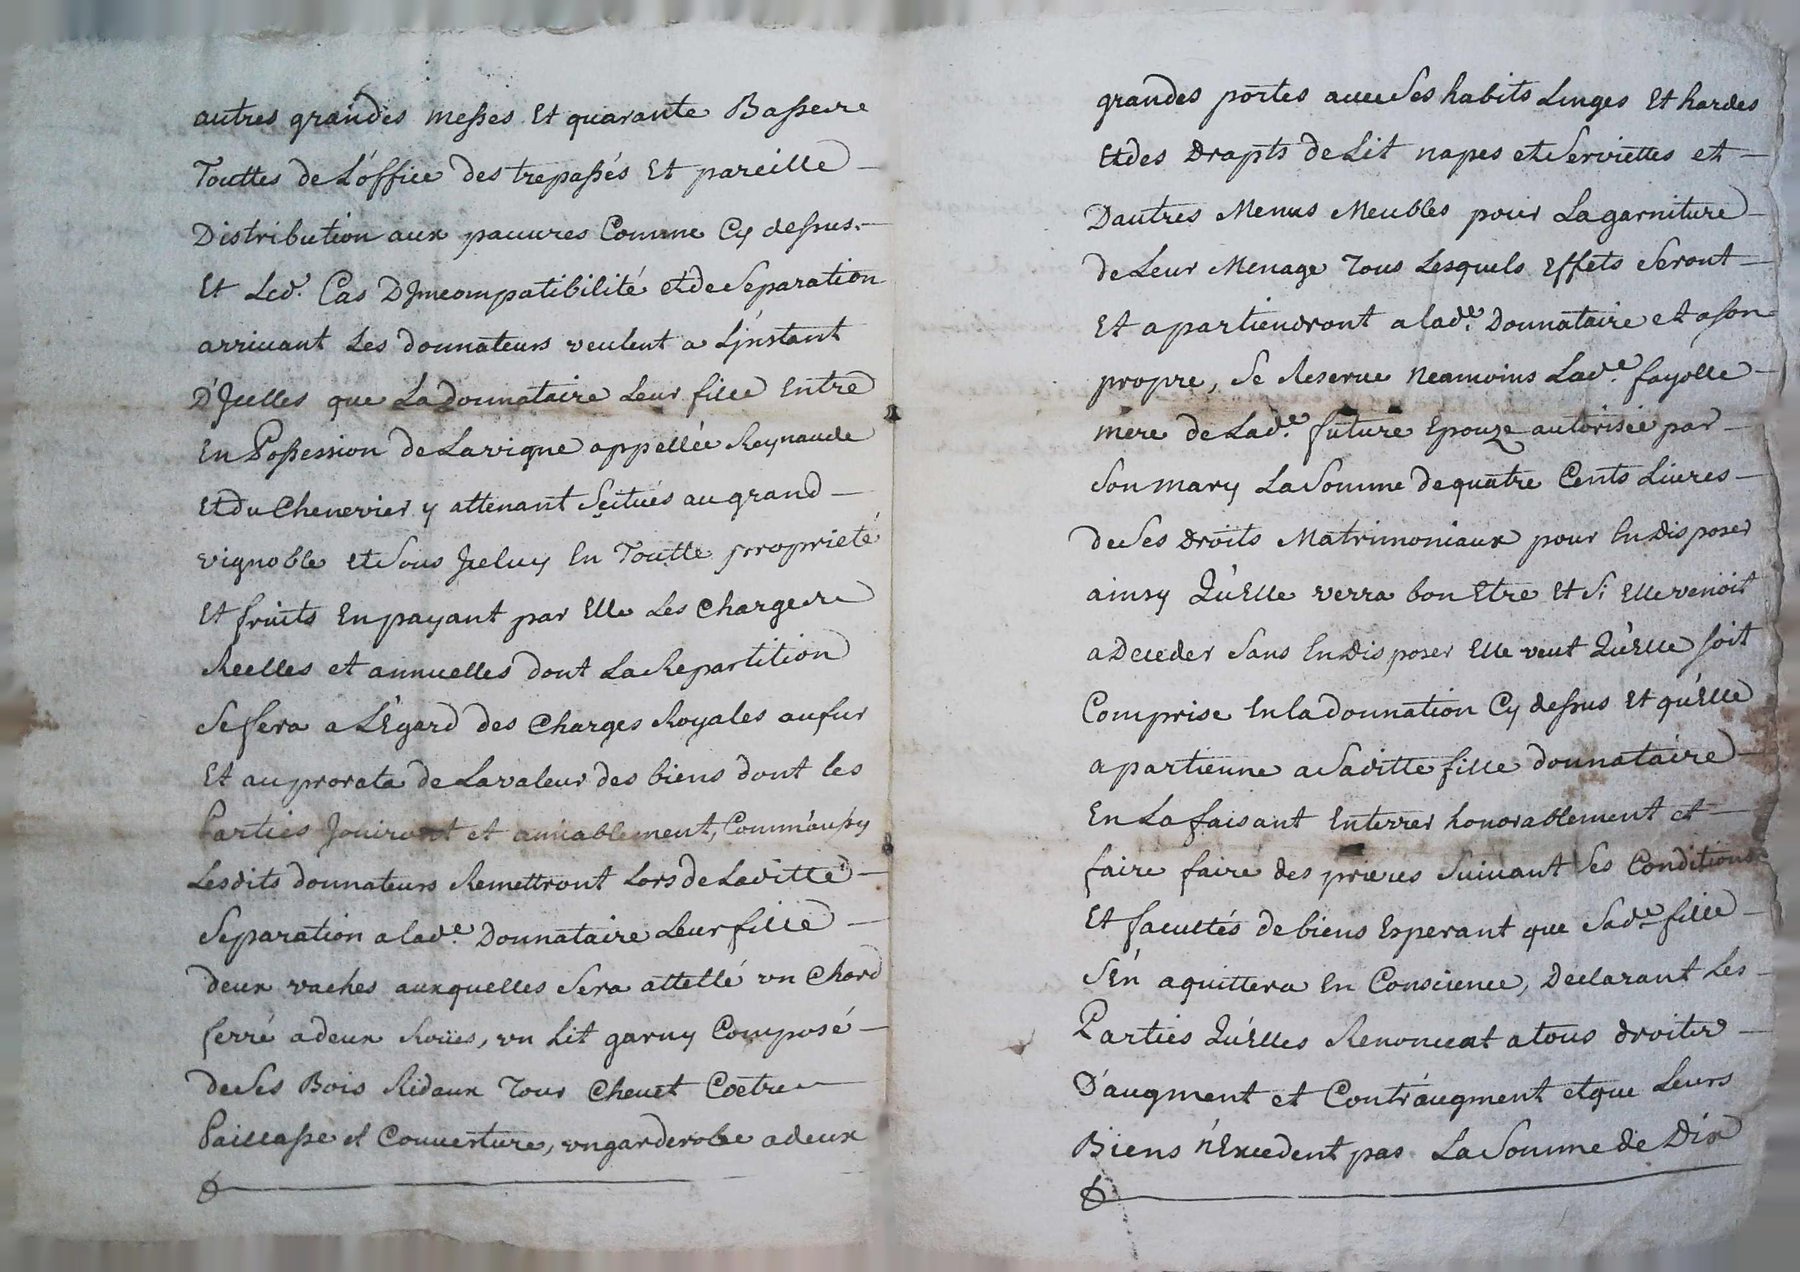 autres grandes messes Et quarante Basses
Touttes de L'office des trepassés Et pareille
Distribution aux pauvres Comme Cy dessus.
Et Led. Cas D'Jncompatibilité et de Separation
arrivant Les donnateurs veulent a L'jnstant
D'Jcelles que La donnataire Leur fille Entre
En Possession de La vigne appellée Reynaude
Et du Chenevier y attenant Scitués au grand
vignoble et Sous Jceluy En Toutte proprieté
Et fruits En payant par Elle Les Charges
Reelles et annuelles dont La Repartition
Se fera a L'Egard des Charges Royales au fur
Et au prorata de La valeur des biens dont les
Parties Jouiront et amiablement, Comm'aussy
Lesdits donnateurs Remettront Lors de Laditte
Separation a lad.e Donnataire Leur fille
deux vaches auxquelles Sera attellé un Chard
ferré a deux Roües, un Lit garny Composé
de Ses Bois Ridaux Tour Chevet Coetre
Paillasse et Couverture, un garderobe a deux
grandes portes avec Ses habits Linges Et hardes
Et des Drapts de Lit napes et Serviettes et
D'autres Menus Meubles pour La garniture
de Leur Menage Tous Lesquels Effets Seront
Et apartiendront a lad.e Donnataire et a Son
propre, Se Reserve Neamoins Lad.e fayolle
mere de Lad.e future Epouze autorisée par
Son mary La Somme de quatre Cents Livres
de Ses Droits Matrimoniaux pour En disposer
ainsy Qu'Elle verra bon Etre Et Si Elle venoit
a Deceder Sans En disposer Elle veut Qu'Elle soit
Comprise En la donnation Cy dessus Et qu'Elle
apartienne a Saditte fille donnataire
En La faisant Enterrer honorablement et
faire faire des prieres Suivant Ses Conditions
Et facultés de biens Esperant que Sad.e fille
S'En aquittera En Conscience, Declarant Les
Parties Qu'Elles Renoncent a tous droits
D'augment et Contr'augment et que Leurs
Biens n'Excedent pas La Somme de Dix